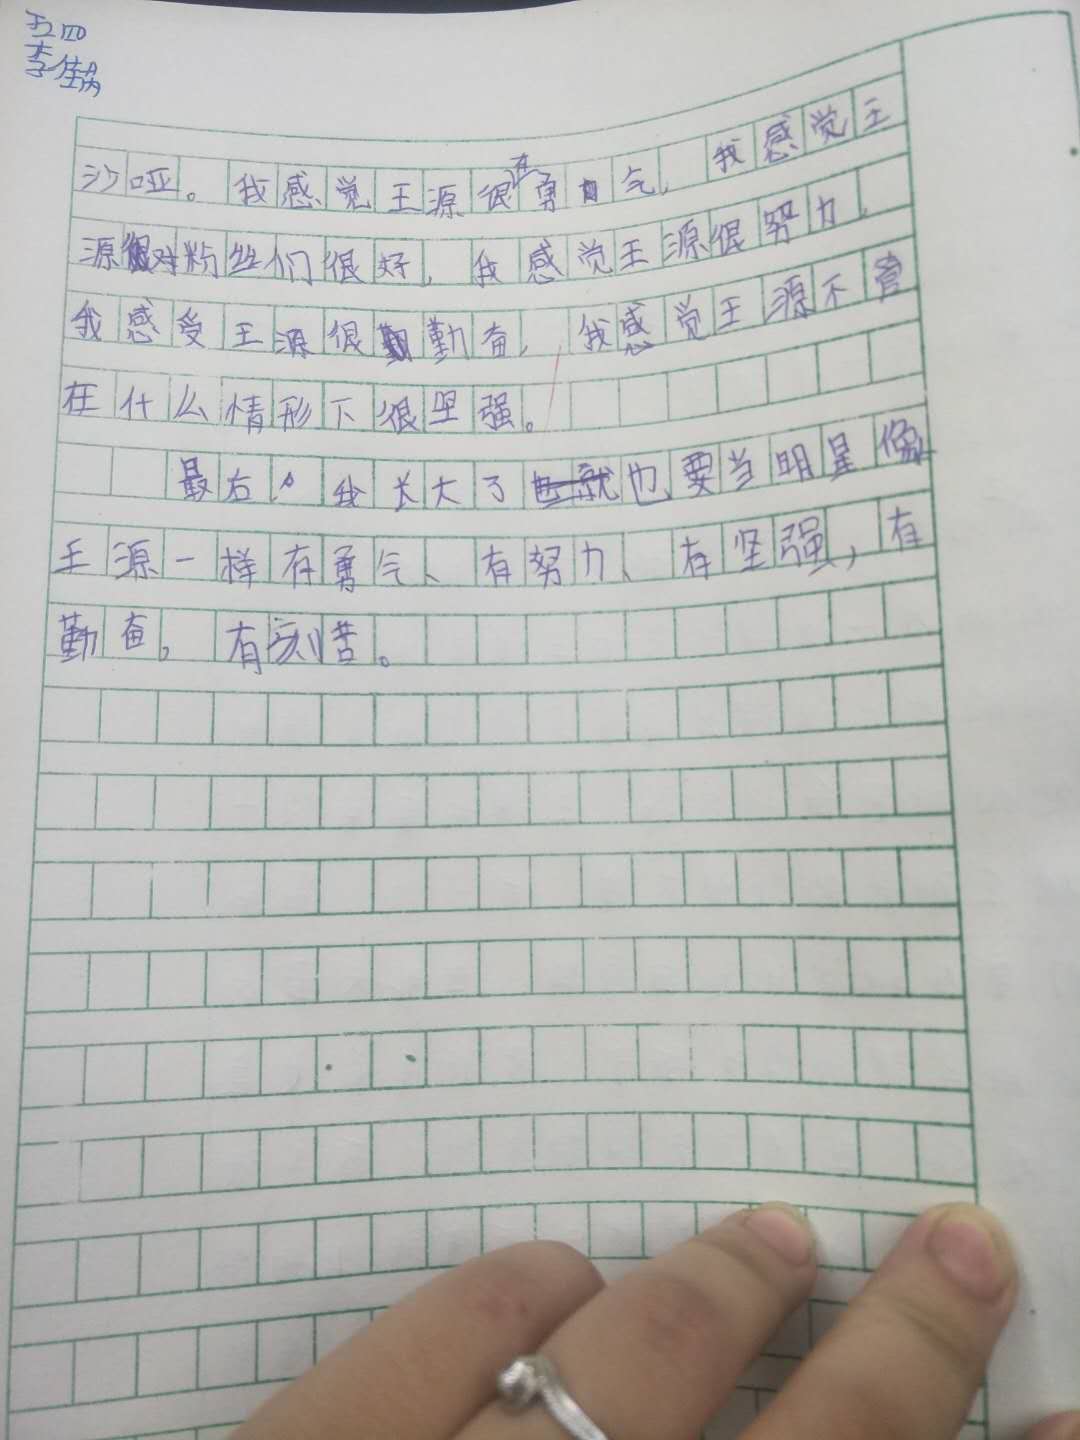 五四
李
沙哑。我感觉王源很有勇气，我感觉王
源对粉丝们很好，我感觉王源很努力，
我感受王源很勤奋，我感觉王源不管
在什么情形下很坚强。
最右，我长大了也要当明星像
王源一样有勇气、有努力、有坚强，有
勤奋，有刻苦。